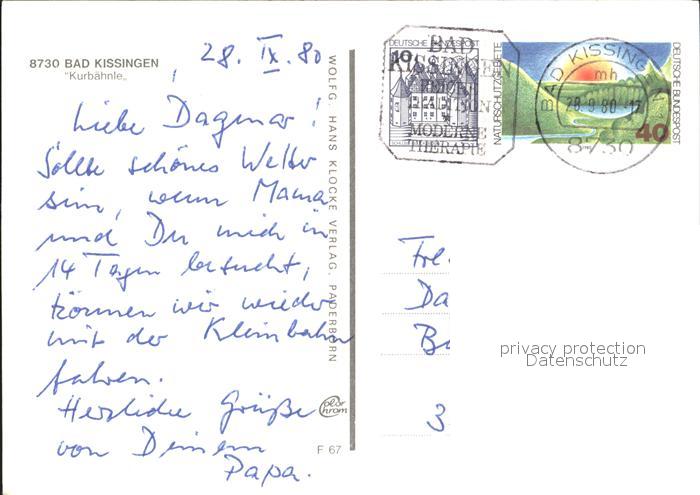 28. IX. 80
8730 BAD KISSINGEN
"Kurbähnle"
Liebe Dagmar!
Sollte schönes Wetter
sein, wenn Mama
und Du mich in
14 Tagen besucht,
können wir wieder
mit der Kleinbahn
fahren.
Herzliche Grüße
von Deinem
Papa.
WOLFG. HANS KLOCKE VERLAG, PADERBORN
F 67
DEUTSCHE BUNDESPOST
10
BAD
KISSINGEN
TRADITION
MODERNE
THERAPIE
NATURSCHUTZGEBIETE
DEUTSCHE BUNDESPOST
40
BAD KISSINGEN 1
mh
28.9.80-17
8730
Frl.
Da
B
3
privacy protection
Datenschutz